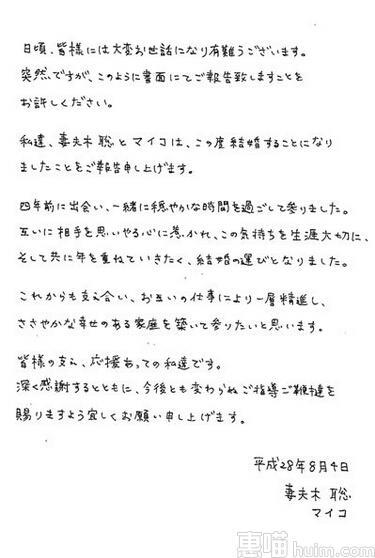 日頃、皆様には大変お世話になり有難うございます。
突然ですが、このように書面にてご報告致しますことを
お許しください。
私達、妻夫木 聡 と マイコ は、この度 結婚することになり
ましたことをご報告申し上げます。
四年前に出会い、一緒に穏やかな時間を過ごして参りました。
互いに相手を思いやる心に惹かれ、この気持ちを生涯大切に、
そして共に年を重ねていきたく、結婚の運びとなりました。
これからも支え合い、お互いの仕事により一層精進し、
ささやかな幸せのある家庭を築いて参りたいと思います。
皆様の支え、応援あっての私達です。
深く感謝するとともに、今後とも変わらぬご指導ご鞭撻を
賜りますよう宜しくお願い申し上げます。
平成28年8月4日
妻夫木 聡
マイコ
惠喵
huim.com